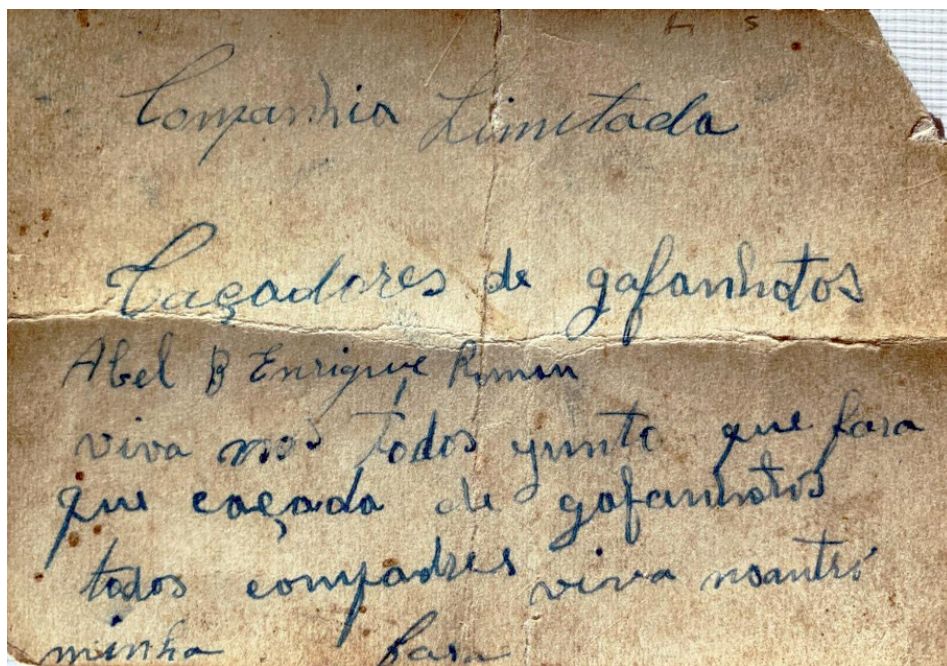 Companhia Limitada
Caçadores de gafanhotos
Abel B Enrique Roman
viva nos todos yunto que fara
que caçada de gafanhotos
todos compadres viva noantri
minha fara